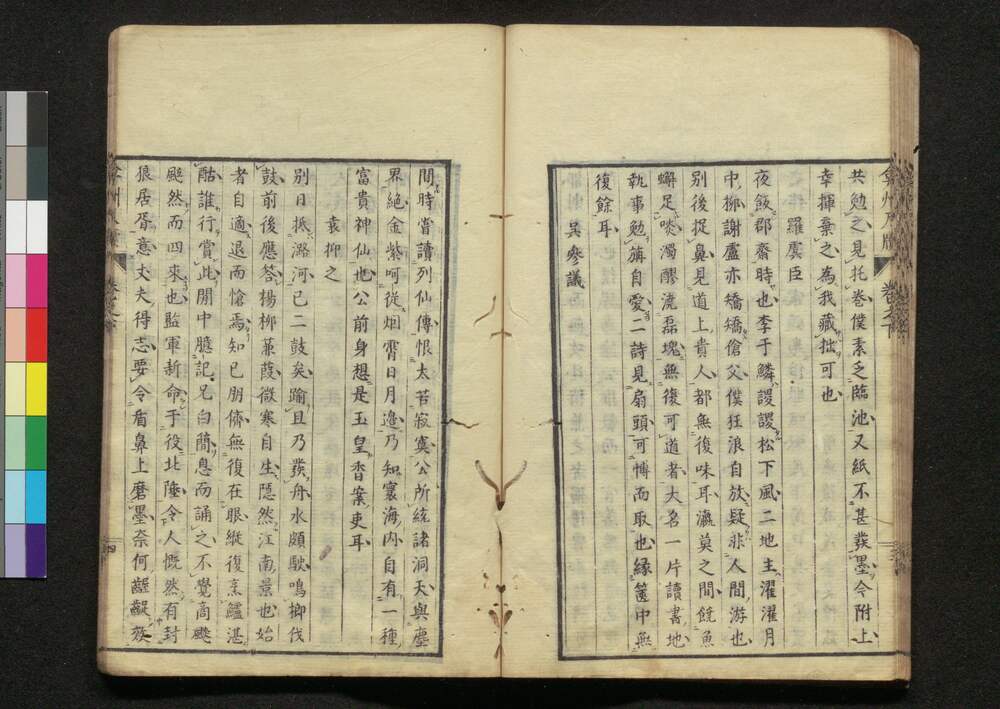 共勉之見托卷僕素乏臨池又紙不甚發墨令附上
幸揮棄之為我藏拙可也
羅虞臣
夜飯郡齋時也李于鱗謖謖松下風二地主濯濯月
中柳謝盧亦矯矯傖父僕狂浪自放疑非人間游也
別後捉鼻見道上貴人都無復味耳瀛莫之間饒魚
蟹足啖濁醪澆磊塊無復可道者大名一片讀書地
執事勉旃自愛二詩見扇頭可博而取也緣篋中無
復餘耳
吳參議
間時當讀列仙傳恨太苦寂寞公所統諸洞天與塵
界絕金紫呵從烟霄日月邊乃知寰海內自有一種
富貴神仙也公前身想是玉皇香案吏耳
袁抑之
別日抵潞河已二鼓矣踰且乃發舟水頗駛鳴榔伐
鼓前後應答楊柳蒹葭微寒自生隱然江南景也始
者自適退而愴焉知已朋儕無復在眼縱復烹鱸湛
酤誰行賞此閒中臆記兄白簡息而誦之不覺商飈
颼然而四來也監軍新命于役北陲令人慨然有封
狼居胥意丈夫得志要令盾鼻上磨墨奈何齷齪效